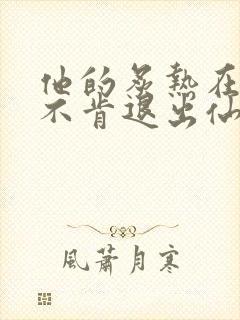 他的炙熱在
不肯退出仙
風蕭月寒